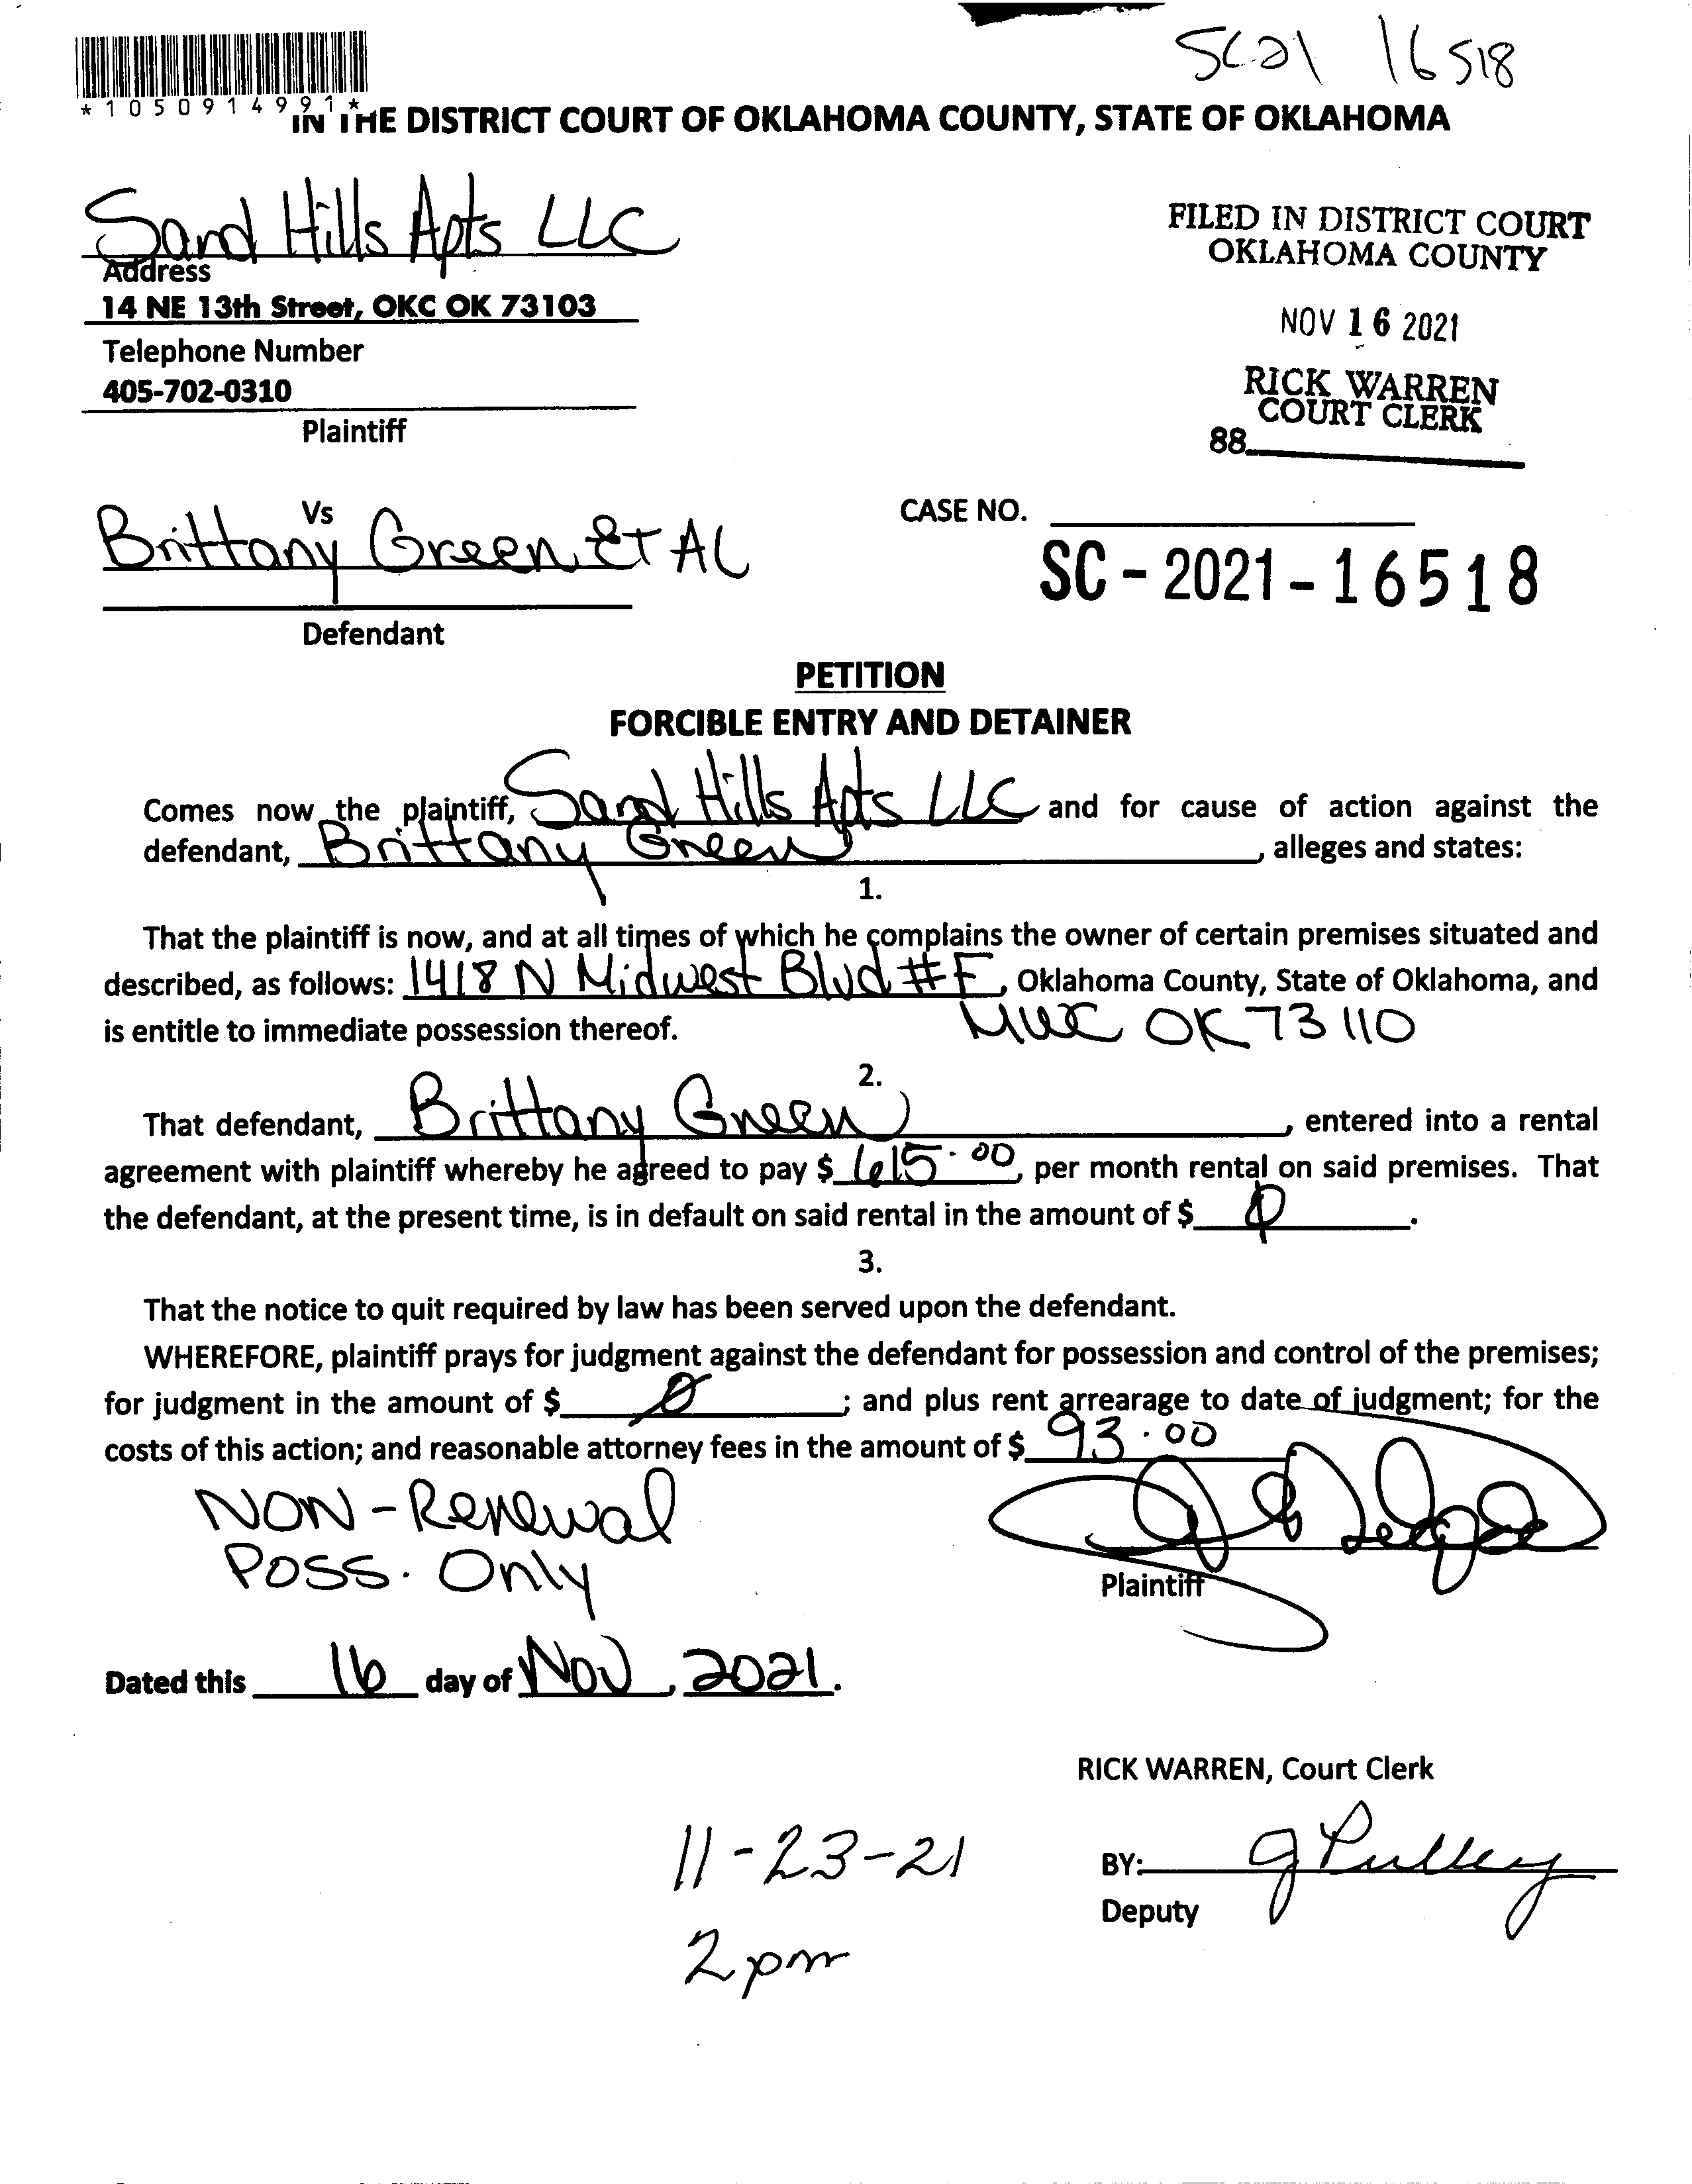 SC21 16518
*1050914991*
IN THE DISTRICT COURT OF OKLAHOMA COUNTY, STATE OF OKLAHOMA
Sand Hills Apts LLC
Address
14 NE 13th Street, OKC OK 73103
Telephone Number
405-702-0310
Plaintiff
FILED IN DISTRICT COURT
OKLAHOMA COUNTY
NOV 16 2021
RICK WARREN
COURT CLERK
88
Vs
Brittany Green, Et AL
Defendant
CASE NO.
SC - 2021 - 16518
PETITION
FORCIBLE ENTRY AND DETAINER
Comes now the plaintiff, Sand Hills Apts LLC and for cause of action against the
defendant, Brittany Green, alleges and states:
1.
That the plaintiff is now, and at all times of which he complains the owner of certain premises situated and
described, as follows: 1418 N Midwest Blvd #F, Oklahoma County, State of Oklahoma, and
is entitle to immediate possession thereof. MWC OK 73110
2.
That defendant, Brittany Green, entered into a rental
agreement with plaintiff whereby he agreed to pay $ 615.00, per month rental on said premises. That
the defendant, at the present time, is in default on said rental in the amount of $ 0.
3.
That the notice to quit required by law has been served upon the defendant.
WHEREFORE, plaintiff prays for judgment against the defendant for possession and control of the premises;
for judgment in the amount of $ 0; and plus rent arrearage to date of judgment; for the
costs of this action; and reasonable attorney fees in the amount of $ 93.00
NON-Renewal
Poss. Only
Plaintiff
Dated this 16 day of Nov, 2021.
RICK WARREN, Court Clerk
11-23-21
2 pm
BY: g Pulley
Deputy